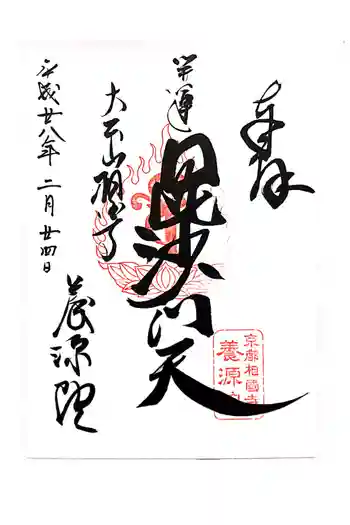 奉拝
開運
毘沙門天
大玉山朋琴
平成廿八年二月廿四日
養源院
京都相國寺
養源院